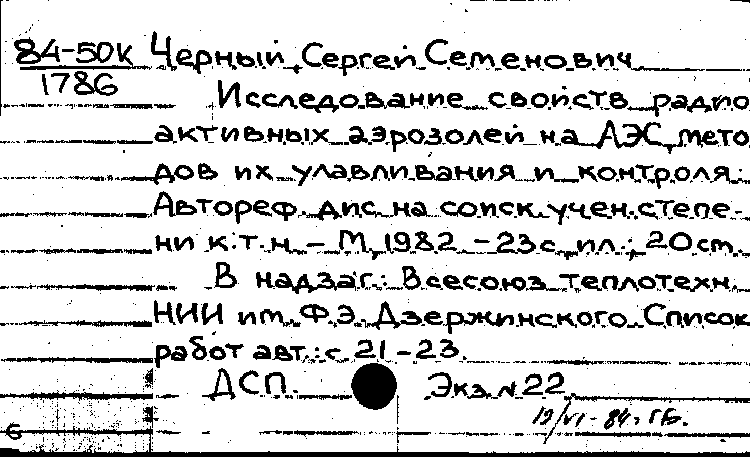 84-50к Черный, Сергей Семенович
1786
Исследование свойств радио
активных аэрозолей на АЭС, мето
дов их улавливания и контроля:
Автореф. дис. на соиск. учен. степе-
ни к.т.н. - М., 1982 - 23с., ил.; 20см.
В надзаг.: Всесоюз. теплотехн.
НИИ им. Ф.Э. Дзержинского. Список
работ авт.: с. 21-23.
ДСП. Экз. №22
19/VI-84г.
6